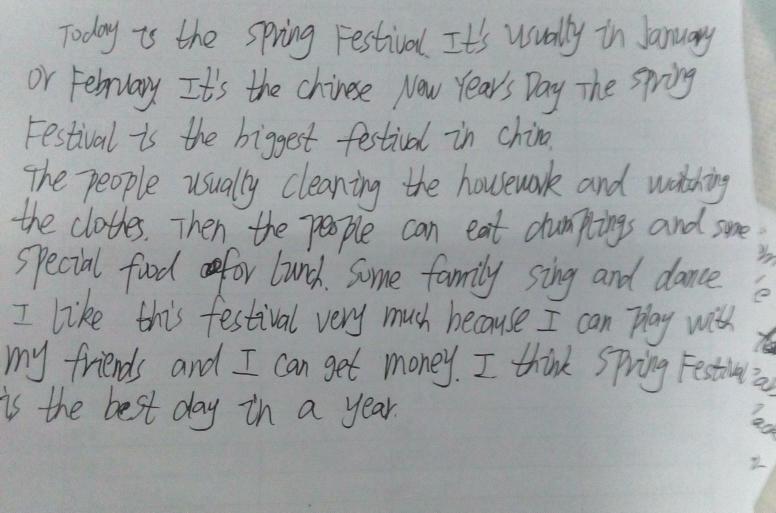 Today is the Spring Festival. It's usually in January
or February. It's the chinese New Year's Day The spring
Festival is the biggest festival in china.
The people usually cleaning the housework and watching
the clothes. Then the people can eat dumptings and some
special food for lunch. Some family sing and dance
I like this festival very much because I can play with
my friends and I can get money. I think Spring Festival
is the best day in a year.